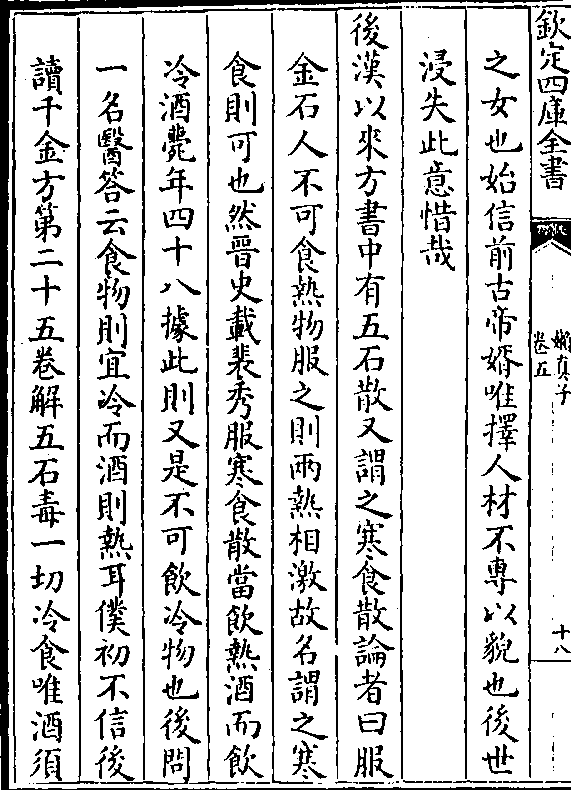 欽定四庫全書
懶真子
卷五
十八
之女也始信前古帝婿唯擇人材不專以貌也後世
浸失此意惜哉
後漢以來方書中有五石散又謂之寒食散論者曰服
金石人不可食熱物服之則兩熱相激故名謂之寒
食則可也然晉史載裴秀服寒食散當飲熱酒而飲
冷酒薨年四十八據此則又是不可飲冷物也後問
一名醫答云食物則宜冷而酒則熱耳僕初不信後
讀千金方第二十五卷解五石毒一切冷食唯酒須